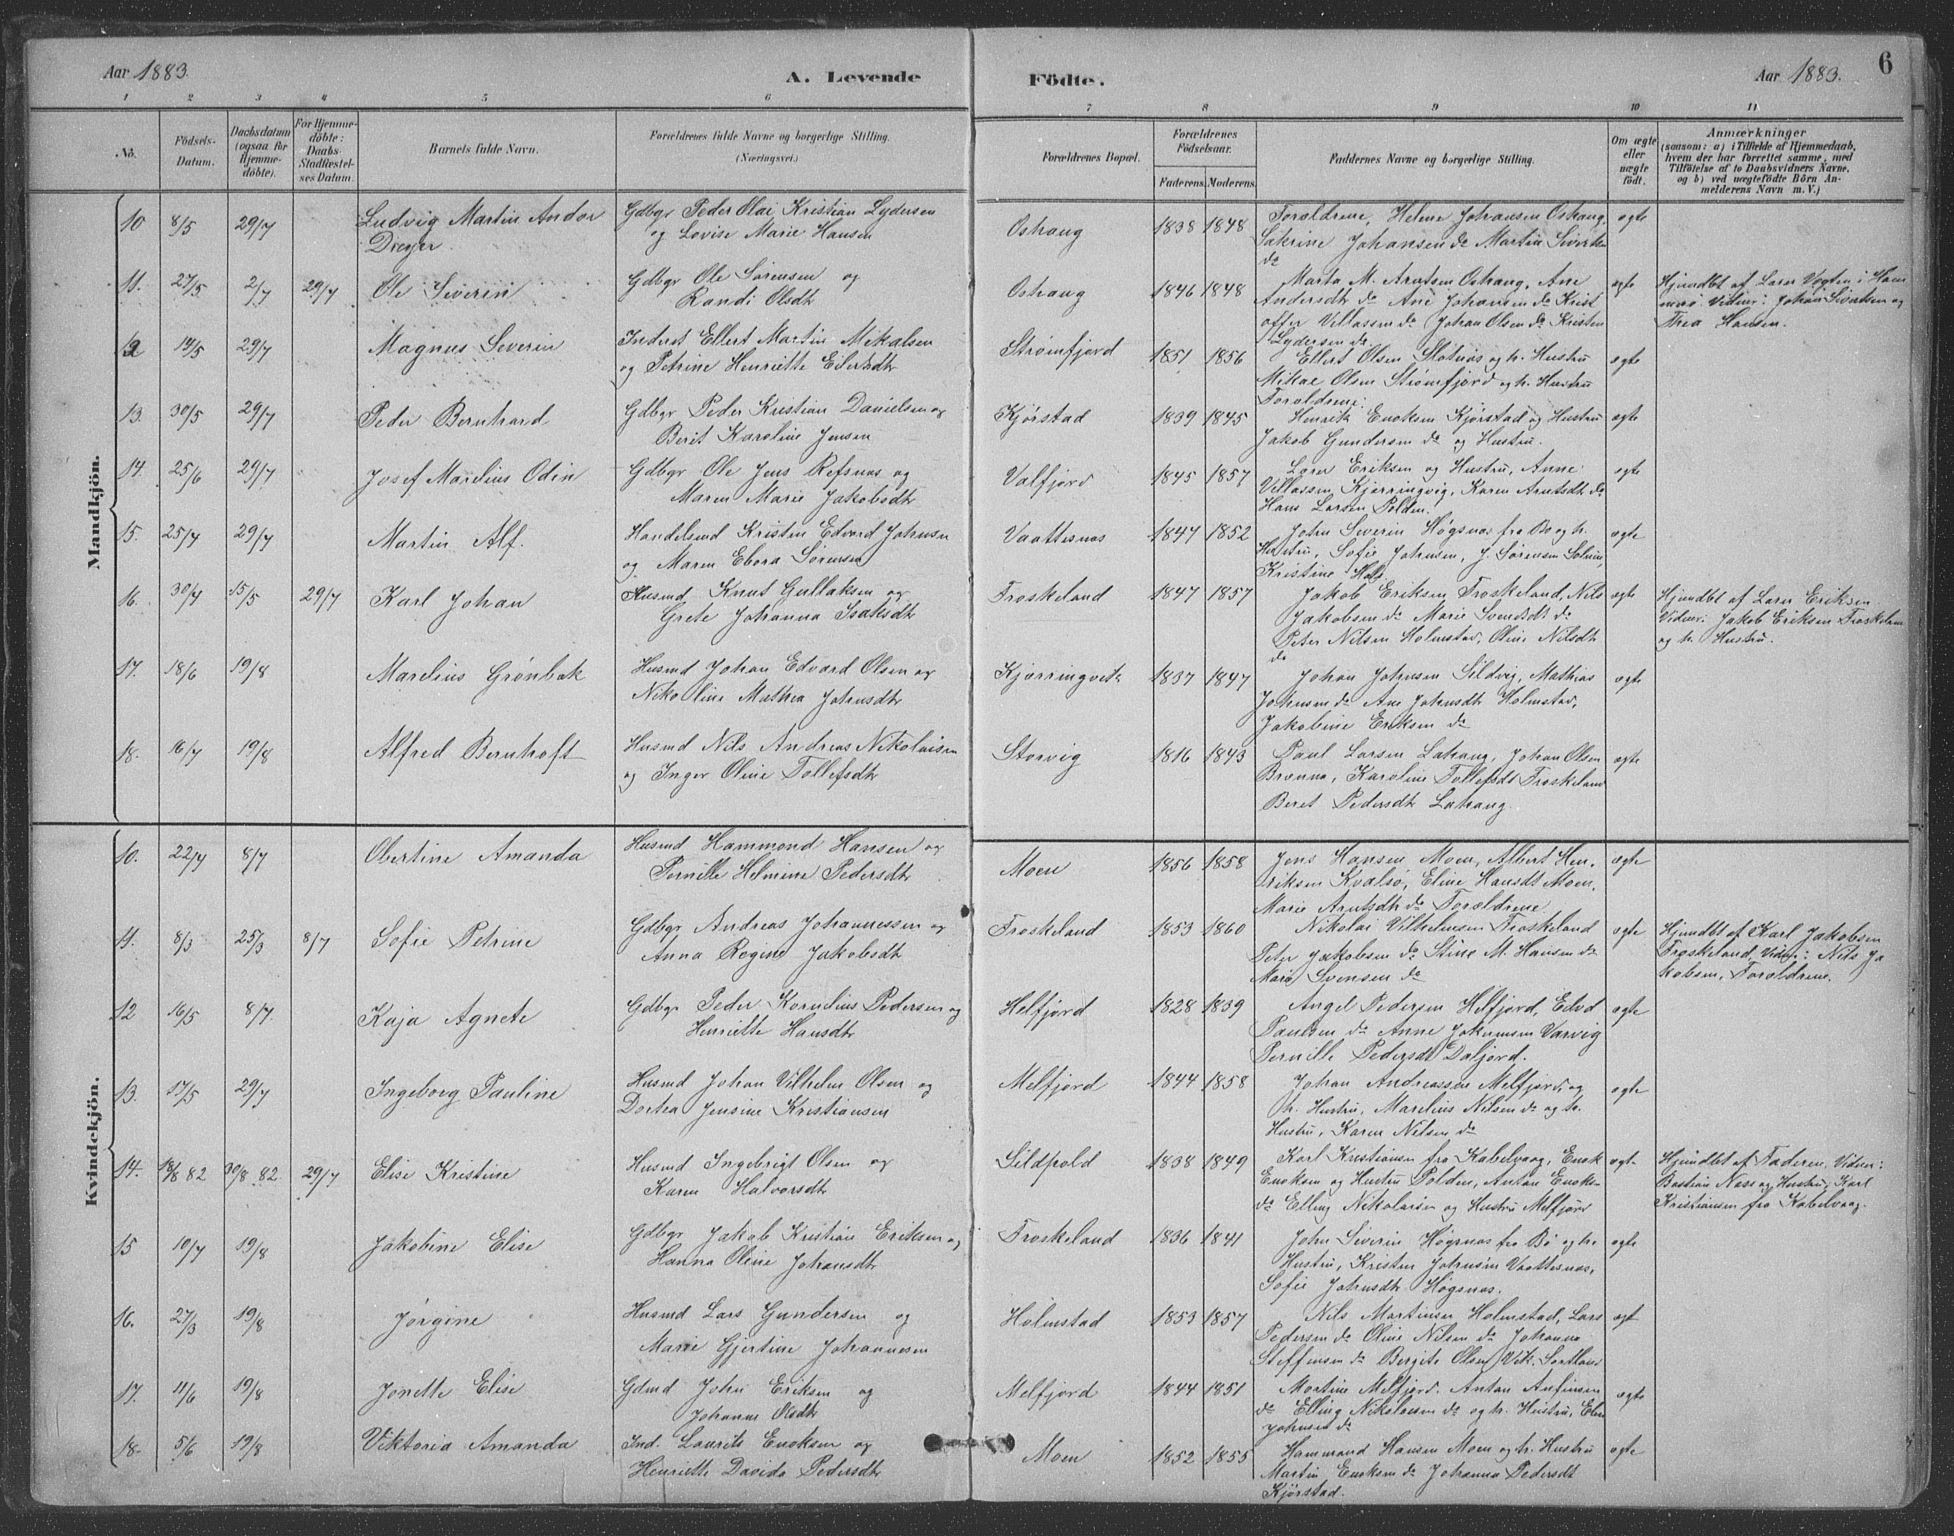 Aar 1883.
A. Levende Födte.
Aar 1883.
6
1 2 3 4 5 6 7 8 9 10 11.
No.
Födsels-Datum.
Daabsdatum (ogsaa for Hjemmedöbte).
For Hjemmedöbte: Daabs-Stadfæstelses Datum.
Barnets fulde Navn.
Forældrenes fulde Navne og borgerlige Stilling. (Næringsvei.)
Forældrenes Bopæl.
Forældrenes Födselsaar.
Faderens. Moderens.
Faddernes Navne og borgerlige Stilling.
Om ægte eller uægte födt.
Anmærkninger (saasom: a) i Tilfælde af Hjemmedaab, hvem der har forrettet samme, med Tilföielse af to Daabsvidners Navne, og b) ved uægtefödte Börn Anmelderens Navn m. V.)
Mandkjön.
10 8/5 29/7 Ludvig Martin Andor Dreyer Gdbgr Peder Olai Kristian Lydersen og Lovise Marie Hansen Oshaug 1838 1848 Foræld­rene, Helene Johansen Oshaug, Sakrine Johansen do Martin Siverts do ægte
11. 27/5 2/7 29/7 Ole Severin Gdbgr Ole Sørensen og Randi Olsdtr Oshaug 1846 1848 Marta M. Arntsen Oshaug, Ane Andersdtr do Ane Johansen do Kristoffer Villassen do Johan Olsen do Kristen Lydersen do ægte Hjmdbt af Lærer Vogten i Hammerø Vidner: Johan Sivertsen og Thea Hansen.
12 14/5 29/7 Magnus Severin Inderst Ellert Martin Mikalsen og Petrine Henriette Eilertsdtr Strømfjord 1851 1856 Ellert Olsen Slotnæs og h. Hustru Mikal Olsen Strømfjord og h. Hustru Forældrene: ægte
13. 30/5 29/7 Peder Bernhard Gdbgr Peder Kristian Danielsen og Berit Karoline Jensen Kjørstad 1839 1845 Henrik Enoksen Kjørstad og Hustru Jakob Gundersen do og Hustru. ægte
14. 25/6 29/7 Josef Marelius Odin Gdbgr Ole Jens Refsnæs og Maren Marie Jakobsdtr Valfjord 1845 1857 Lærer Eriksen og Hustru, Anne Villassen, Kjerringvig, Karen Arntsdtr do Hans Larsen Polden. ægte
15. 25/7 29/7 Martin Alf. Handelsmd Kristen Edvard Johnsen og Maren Ebora Sørensen Vaattesnæs 1847 1852 John Severin Høgsnæs fra Bø og h. Hustru, Sofie Johnsen, J. Sørensen Kristine Holst ægte
16. 30/4 15/5 29/7 Karl Johan Husmd Knut Gullaksen og Grete Johanna Isaksdtr Froskeland 1847 1857 Jakob Eriksen Froskeland, Nils Jakobsen do Marie Svendsdtr do Peter Nilsen Holmstad, Oline Nilsdtr do ægte Hjmdbt af Lærer Eriksen Vidner: Jakob Eriksen Froskeland og h. Hustru.
17. 18/6 19/8 Marelius Grønbæk Husmd Johan Edvard Olsen og Nikoline Mathea Johnsdtr Kjerringvik 1837 1847 Johan Johnsen Sildvig, Mathias Johnsen do Ane Johnsdtr Holmstad, Jakobine Eriksen do ægte
18. 16/7 19/8 Alfred Bernhoft Husmd Nils Andreas Nikolaisen og Inger Oline Tollefsdtr Storvig 1816 1843 Paul Larsen Lahaug, Johan Olsen Brenna, Karoline Tollefsdtr Froskeland Beret Pedersdtr Lahaug. ægte
Kvindekjön.
10. 22/4 8/7 Obertine Amanda Husmd Hammond Hansen og Pernille Helmine Pedersdtr Moen 1856 1858 Jens Hansen Moen, Albert Henriksen Kvalsø, Eline Hansdt Moen, Marie Arntsdtr do Forældrene ægte
11. 8/3 25/3 8/7 Sofie Petrine Gdbgr Andreas Johannessen og Anna Regine Jakobsdtr Froskeland 1853 1860 Nikolai Vilhelmsen Froskeland Peter Jakobsen do Stine M. Hansen do Marie Svensen do ægte Hjmdbt af Karl Jakobsen Froskeland, Vidner: Nils Jakobsen, Forældrene.
12 16/5 8/7. Kaja Agnete Gdbgr Peder Kornelius Pedersen og Henriette Hansdtr Helfjord 1828 1839 Angel Pedersen Helfjord, Edvd Paulsen do Anne Jokumsen Varvig Pernille Pedersdt Daljord. ægte
13. 17/5 29/7 Ingeborg Pauline Husmd Johan Vilhelm Olsen og Dortea Jensine Kristiansen Melfjord 1844 1858 Johan Andreassen Melfjord og h. Hustru, Marelius Nilsen do og h. Hustru, Karen Nilsen do ægte
14. 18/8 82 30/8 82. 29/7 Elise Kristine Husmd Ingebrigt Olsen og Karen Halvorsdtr Sildpold 1838 1849 Karl Kristiansen fra Kabelvaag, Enok Enoksen og Hustru Polden, Anton Enoks- do Elling Nikolaisen og Hustru Melfjord ægt. Hjmdbt af Faderen. Vidner: Bastian Næss og Hustru, Karl Kristiansen fra Kabelvaag.
15 10/7 19/8 Jakobine Elise Gdbgr Jakob Kristian Eriksen og Hanna Oline Johansdtr Froskeland 1836 1841 John Siverin Høgsnæs fra Bø og h. Hustru, Kristen Johnsen Vaattesnæs, Sofie Johnsdtr Høgsnæs. ægte
16. 27/3 19/8 Jørgine Husmd Lars Gundersen og Marie Gjertine Johannesen Holmstad 1853 1857 Nils Martinsen Holmstad, Lars Pedersen do Oline Nilsen do Johanna Steffensen do Bergite Olsen Vik. Sortland ægt
17. 11/6 19/8 Jonette Elise Gdmd John Eriksen og Johanne Olsdtr Melfjord 1844 1851 Martine Melfjord. Anton Anfinsen do Elling Nikolaisen do og h. Hustru, Elen Johnsen do ægte
18. 5/6 19/8 Viktoria Amanda Ind. Laurits Enoksen og Henriette Davida Pedersdtr Moen 1852 1855 Hammond Hansen Moen og h. Hustru Martin Enoksen do Johanna Pedersdt Kjørstad. ægte